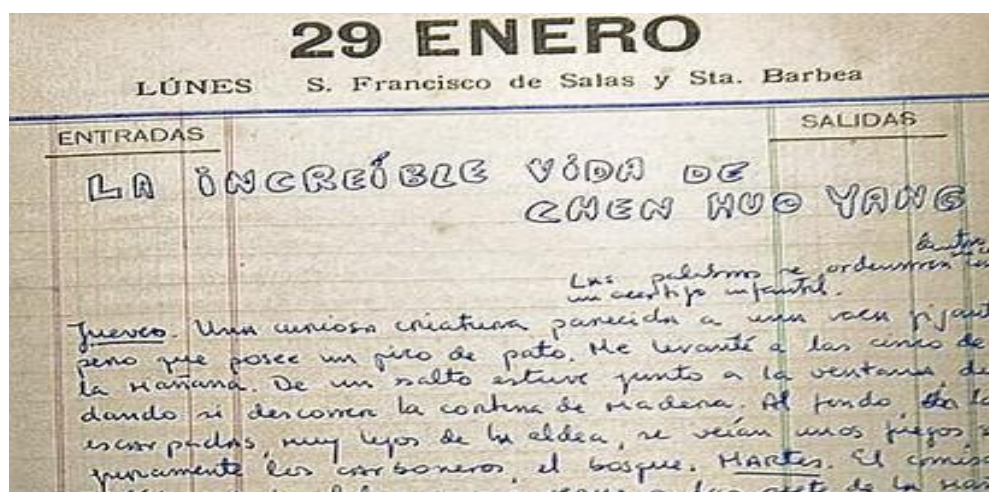 29 ENERO
LÚNES S. Francisco de Salas y Sta. Barbea
ENTRADAS SALIDAS
LA INCREÍBLE VIDA DE
CHEN HUO YANG
Las palabras se ordenaron
un acertijo infantil.
Jueves. Una curiosa criatura parecida a una vaca
pero que posee un pico de pato. Me levanté a las cinco de
la mañana. De un salto estuve junto a la ventana,
dando si descorrer la cortina de madera. Al fondo,
escarpadas, muy lejos de la aldea, se veían unos fuegos,
los carboneros, el bosque. MARTES. El